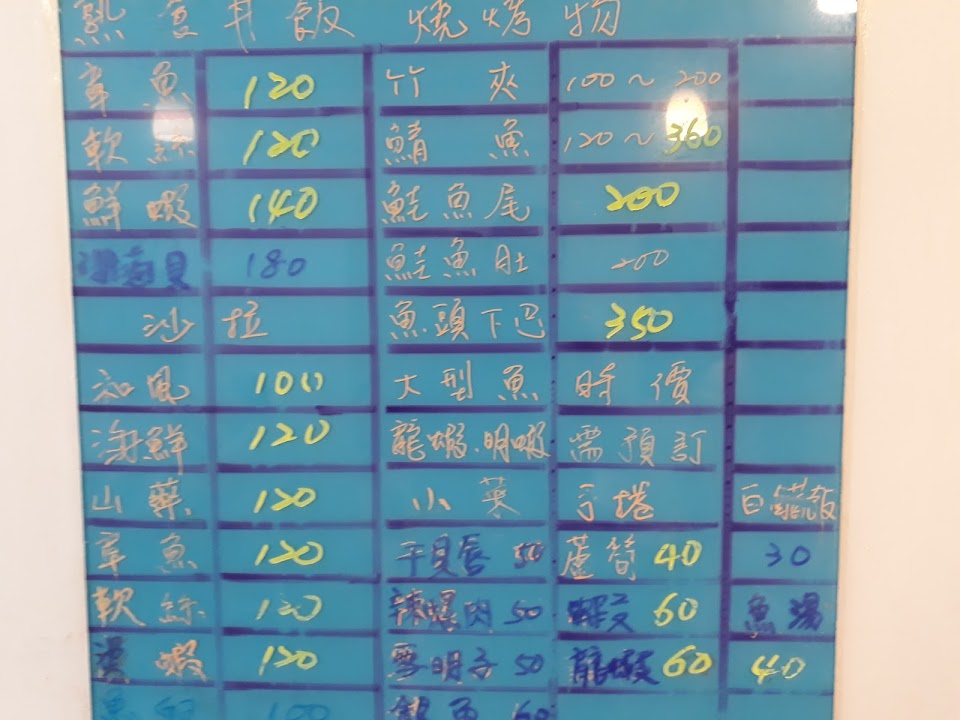 熟食丼飯 燒烤物
章魚 120 竹夾 100~200
軟絲 120 鯖魚 120~360
鮮蝦 140 鮭魚尾 200
海貝 180 鮭魚肚 200
沙拉 魚頭下巴 350
和風 100 大型魚 時價
海鮮 120 龍蝦.明蝦 需預訂
山藥 120 小菜 手捲 白飯
章魚 120 干貝唇 50 蘆筍 40 30
軟絲 120 辣螺肉 50 60 魚湯
蝦 120 雪明子 50 龍蝦 60 40
100 魚 60